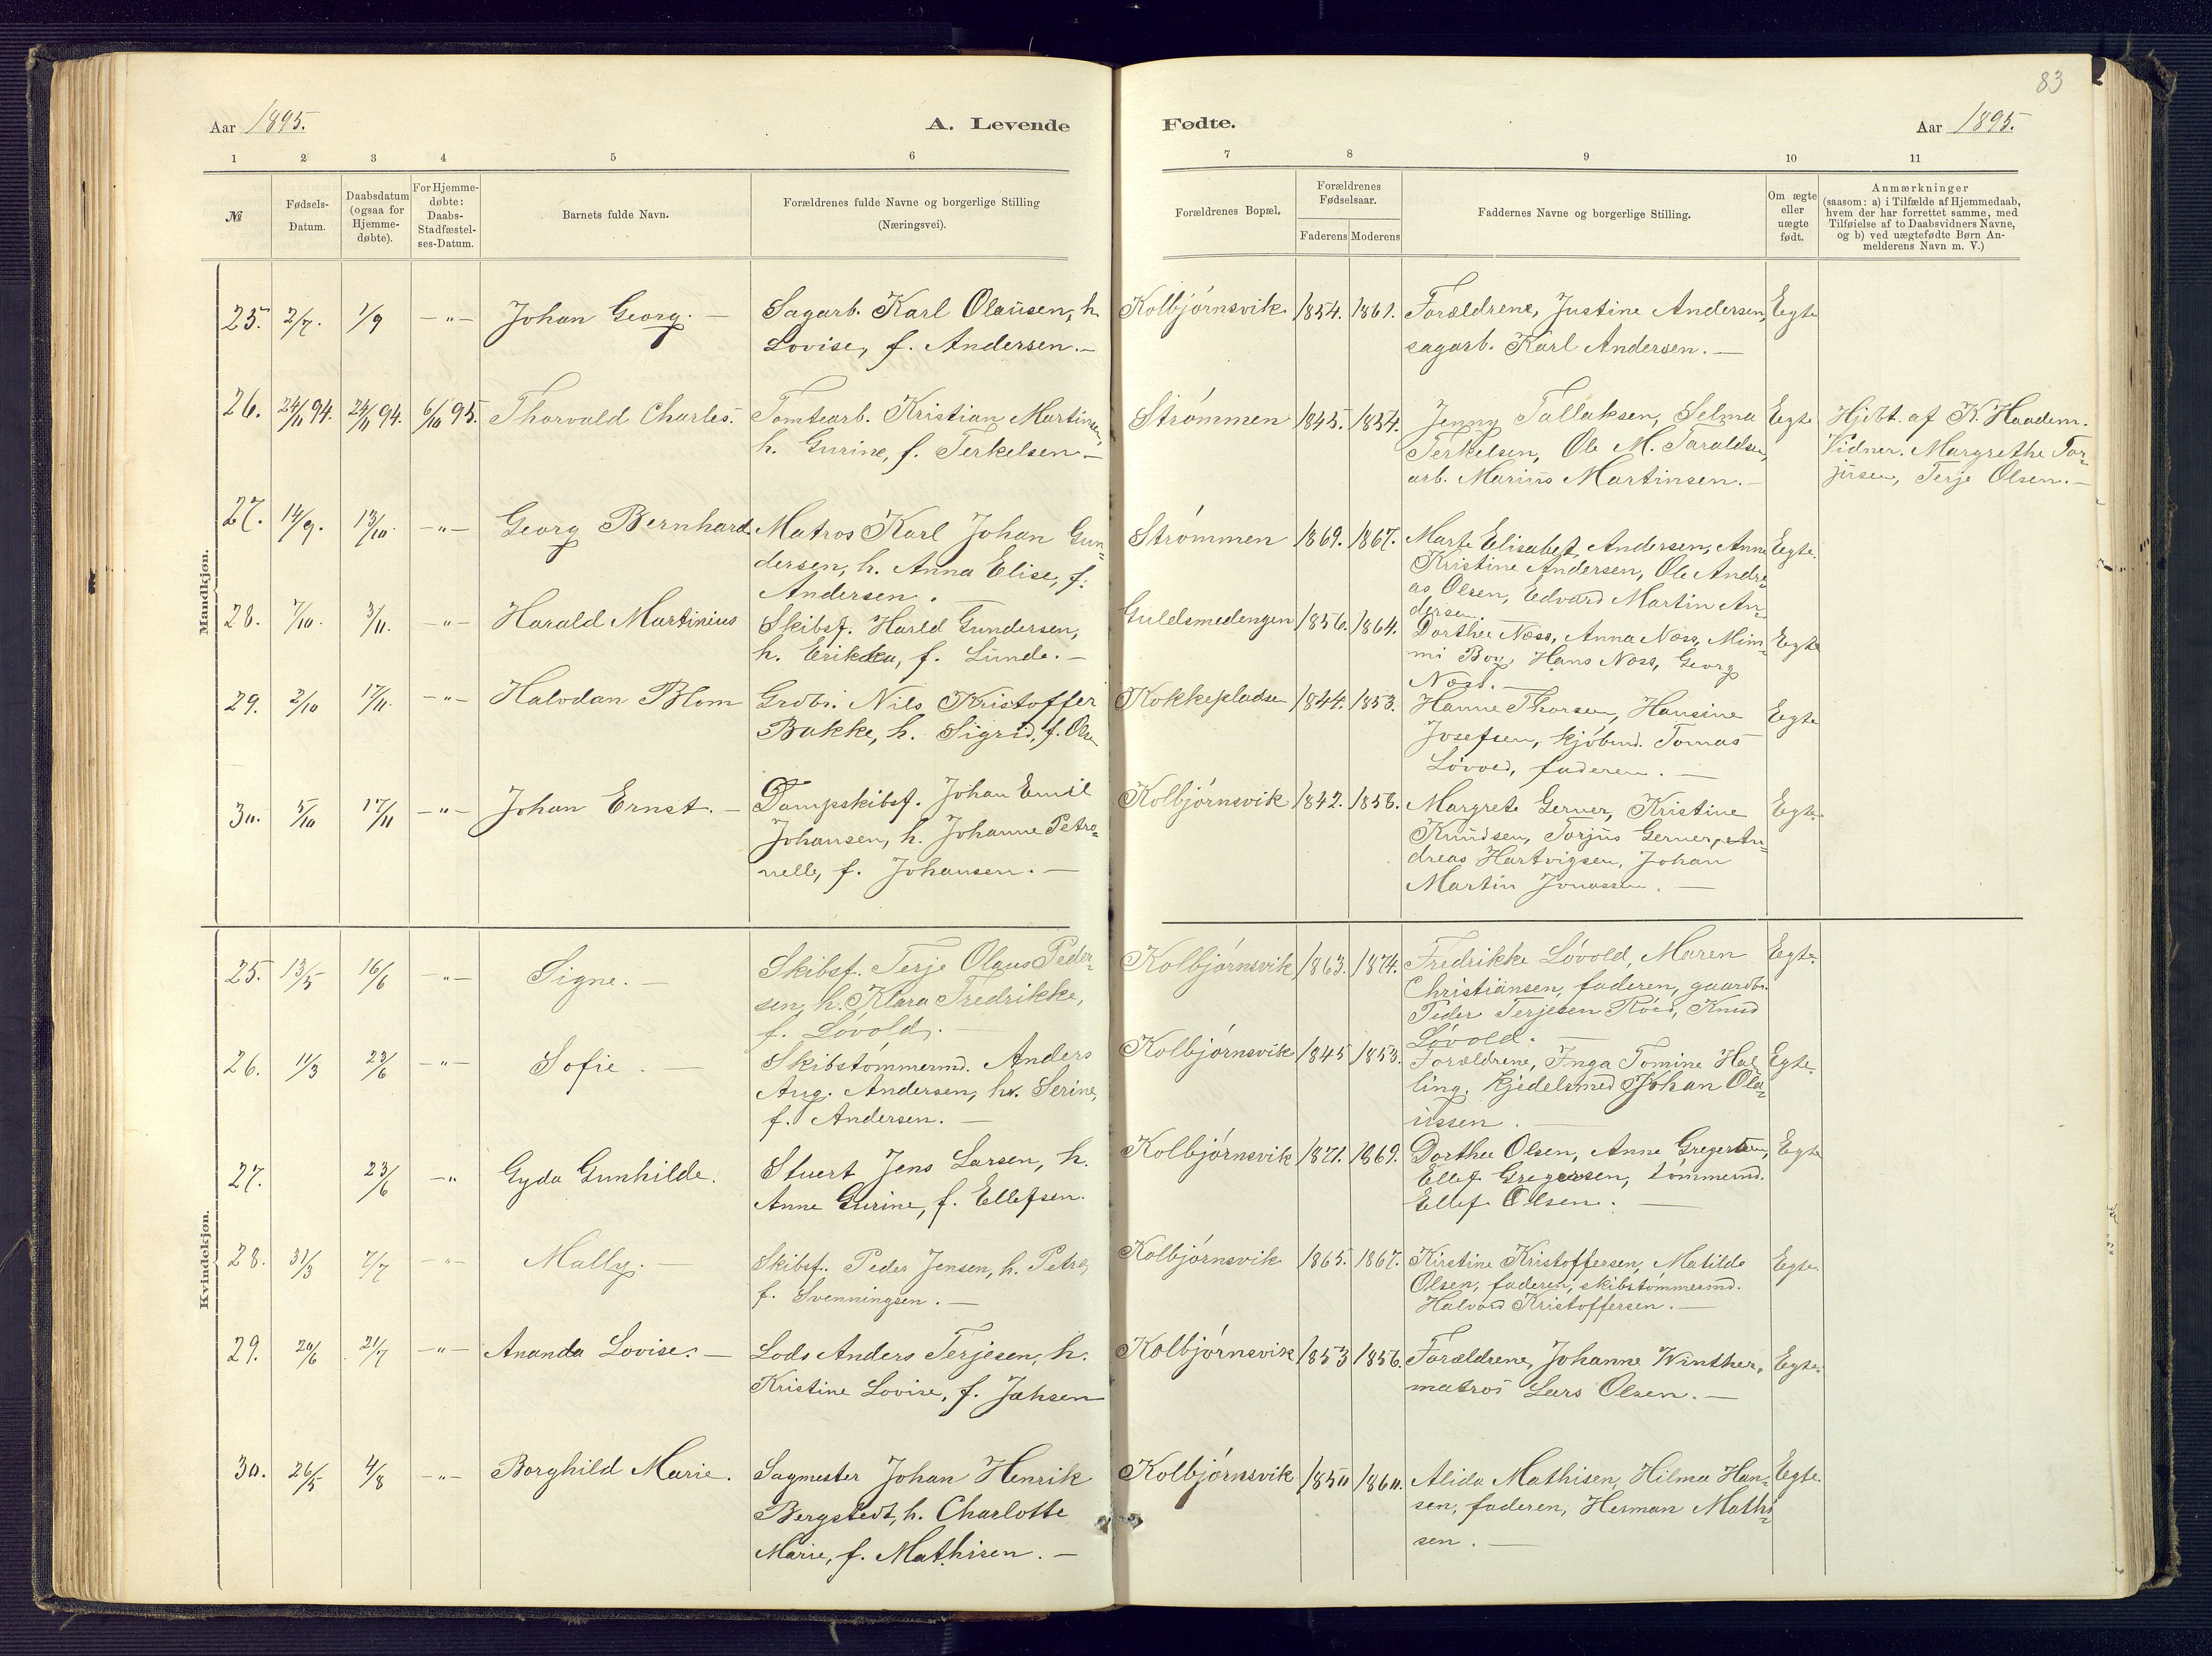 83
Aar 1895.
A. Levende
Fødte.
Aar 1895.
1 2 3 4 5 6 7 8 9 10 11
№
Fødsels-
Datum.
Daabsdatum
(ogsaa for
Hjemme-
døbte).
For Hjemme-
døbte:
Daabs-
Stadfæstel-
ses-Datum.
Barnets fulde Navn.
Forældrenes fulde Navne og borgerlige Stilling
(Næringsvei).
Forældrenes Bopæl.
Forældrenes
Fødselsaar.
Faderens Moderens
Faddernes Navne og borgerlige Stilling.
Om ægte
eller
uægte
født.
Anmærkninger
(saasom: a) i Tilfælde af Hjemmedaab,
hvem der har forrettet samme, med
Tilføielse af to Daabsvidners Navne,
og b) ved uægtefødte Børn An-
melderens Navn m. V.)
Mandkjøn.
25. 2/7. 1/9 -„- Johan Georg. -
Sagarb. Karl Olausen, h.
Lovise, f. Andersen. -
Kolbjørnsvik 1854. 1861.
Forældrene, Justine Andersen,
sagarb. Karl Andersen. -
Egte
26. 24/11 94. 24/11 94. 6/10 95. Thorvald Charles.
Tomtearb. Kristian Martinsen,
h. Gurine, f. Terkelsen -
Strømmen 1845. 1854.
Jenny Tallaksen, Selma
Terkelsen, Ole M. Taraldsen,
arb. Marius Martinsen. -
Egte
Hjdbt. af K. Haadem.
Vidner. Margrethe Tor-
jusen, Terje Olsen. -
27. 14/9. 13/10. -„- Georg Bernhard.
Matros Karl Johan Gun-
dersen, h. Anna Elise, f.
Andersen.
Strømmen 1869. 1867.
Marte Elisabet Andersen, Anne
Kristine Andersen, Ole Andre-
as Olsen, Edvard Martin An-
dersen.
Egte.
28. 7/10. 3/11. -„- Harald Martinius
Skibsf. Harld Gundersen,
h. Erikka, f. Lunde. -
Guldsmedengen 1856. 1864.
Dorthea Næss, Anna Næss, Mim-
mi Boy, Hans Næss, Georg
Næss. -
Egte
29. 2/10 17/11. -„- Halvdan Blom
Grdbr. Nils Kristoffer
Bakke, h. Sigrid, f. Olsen
Kokkepladsen 1844. 1853.
Hanne Thorsen, Hansine
Josefsen, kjøbmd. Tomas
Løvold, faderen. -
Egte
30. 5/10 17/11 -„- Johan Ernst. -
Dampskibsf. Johan Emil
Johansen, h. Johanne Petro-
nelle, f. Johansen. -
Kolbjørnsvik 1842. 1856.
Margrete Gerner, Kristine
Knudsen, Torjus Gerner, An-
dreas Hartvigsen, Johan
Martin Jonassen. -
Egte.
Kvindekjøn.
25. 13/5 16/6 -„- Signe. -
Skibsf. Terje Olaus Peder-
sen, h. Klara Fredrikke,
f. Løvold. -
Kolbjørnsvik 1863. 1874.
Fredrikke Løvold, Maren
Christiansen, faderen, gaardbr.
Peder Terjesen Röed, Knud
Løvold. -
Egte.
26. 11/3 23/6 -„- Sofie. -
Skibstømmermd. Anders
Aug. Andersen, h. Serine,
f. Andersen. -
Kolbjørnsvik 1845 1853.
Forældrene, Inga Tomine Hal-
ling, kjedelsmed Johan Ola-
ussen. -
Egte.
27. 23/6 -„ Gyda Gunhilde.
Stuert Jens Larsen, h.
Anne Gurine, f. Ellefsen.
Kolbjørnsvik 1871. 1869.
Dorthea Olsen, Anne Gregersen,
Ellef Gregersen, tømmermd.
Ellef Olsen. -
Egte
28. 31/3 7/7 -„- Mally. -
Skibsf. Peder Jensen, h. Petra,
f. Svenningsen. -
Kolbjørnsvik 1865. 1867.
Kirstine Kristoffersen, Matilde
Olsen, faderen, skibstømmermd.
Halvord Kristoffersen. -
Egte
29. 20/6 21/7 -„- Ananda Lovise. -
Lods Anders Terjesen, h.
Kristine Lovise, f. Jahsen
Kolbjørnsvik 1853 1856.
Forældrene, Johanne Winther,
matros Lars Olsen. -
Egte.
30. 26/5 4/8 -„- Borghild Marie.
Sagmester Johan Henrik
Bergstedt, h. Charlotte
Marie, f. Mathisen. -
Kolbjørnsvik 1850 1860.
Alida Mathisen, Hilma Han-
sen, faderen, Herman Mathi-
sen. -
Egte.